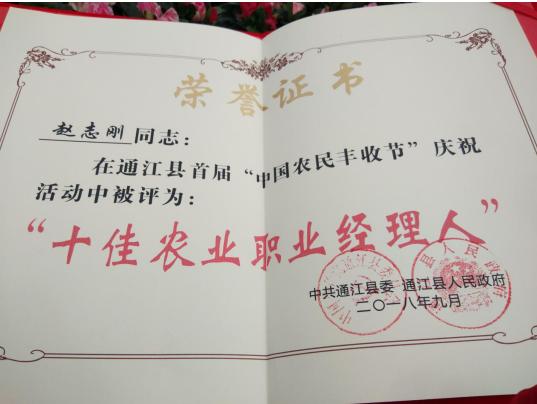 荣誉证书
赵志刚同志：
在通江县首届“中国农民丰收节”庆祝
活动中被评为：
“十佳农业职业经理人”
中共通江县委 通江县人民政府
二〇一八年九月